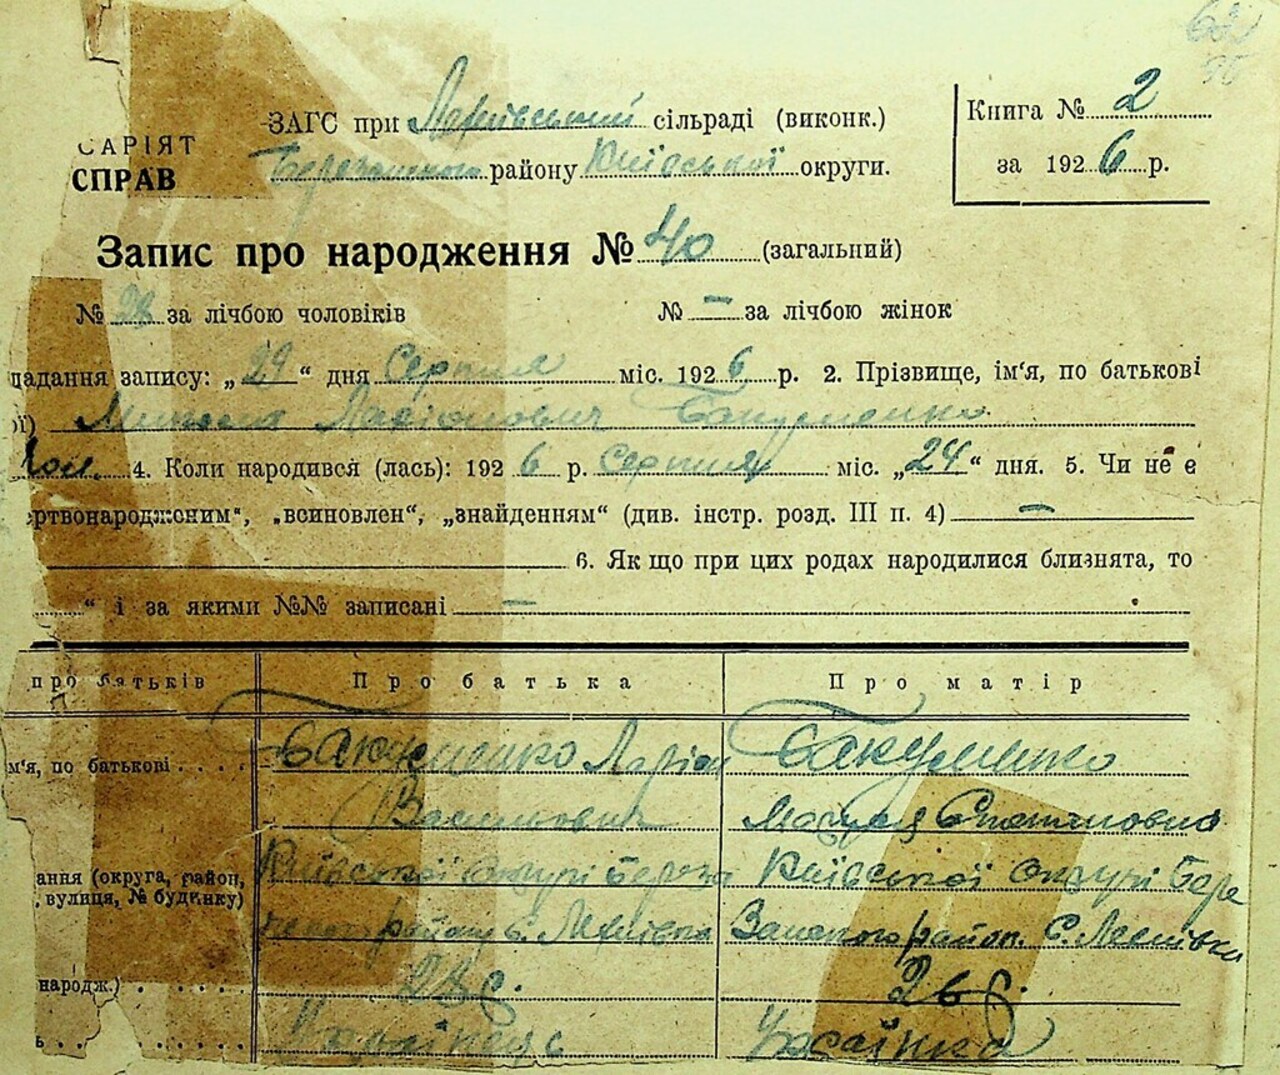 ЗАГС при Лехнівський сільраді (виконк.)
САРІЯТ
СПРАВ
Березанського району Київської округи.
Книга № 2
за 1926 р.
Запис про народження № 40 (загальний)
№ за лічбою чоловіків № — за лічбою жінок
дадання запису: „29“ дня Серпня міс. 1926 р. 2. Прізвище, ім'я, по батькові
ої) Микола Ларіонович Бакуменко
Чол. 4. Коли народився (лась): 1926 р. Серпня міс. „24“ дня. 5. Чи не є
ртвонародженим“, „всиновлен“, „знайденням“ (див. інстр. розд. III п. 4) —
6. Як що при цих родах народилися близнята, то
“ і за якими №№ записані —
про батьків Про батька Про матір
м'я, по батькові . . . . Бакуменко Ларіон Бакуменко
Васильович Мотря Степановна
ання (округа, район, Київської округи Береза Київської округи Бере
вулиця, № будинку)
нського району с. Лехнівка Занського район. С. Лехнівка
народж.) . . . . . . 28 р. 26 р.
ь. . . . . . Українець Українка